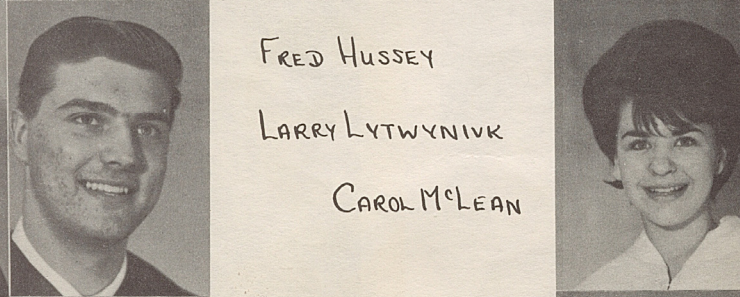 FRED HUSSEY
LARRY LYTWYNIVK
CAROL McLEAN